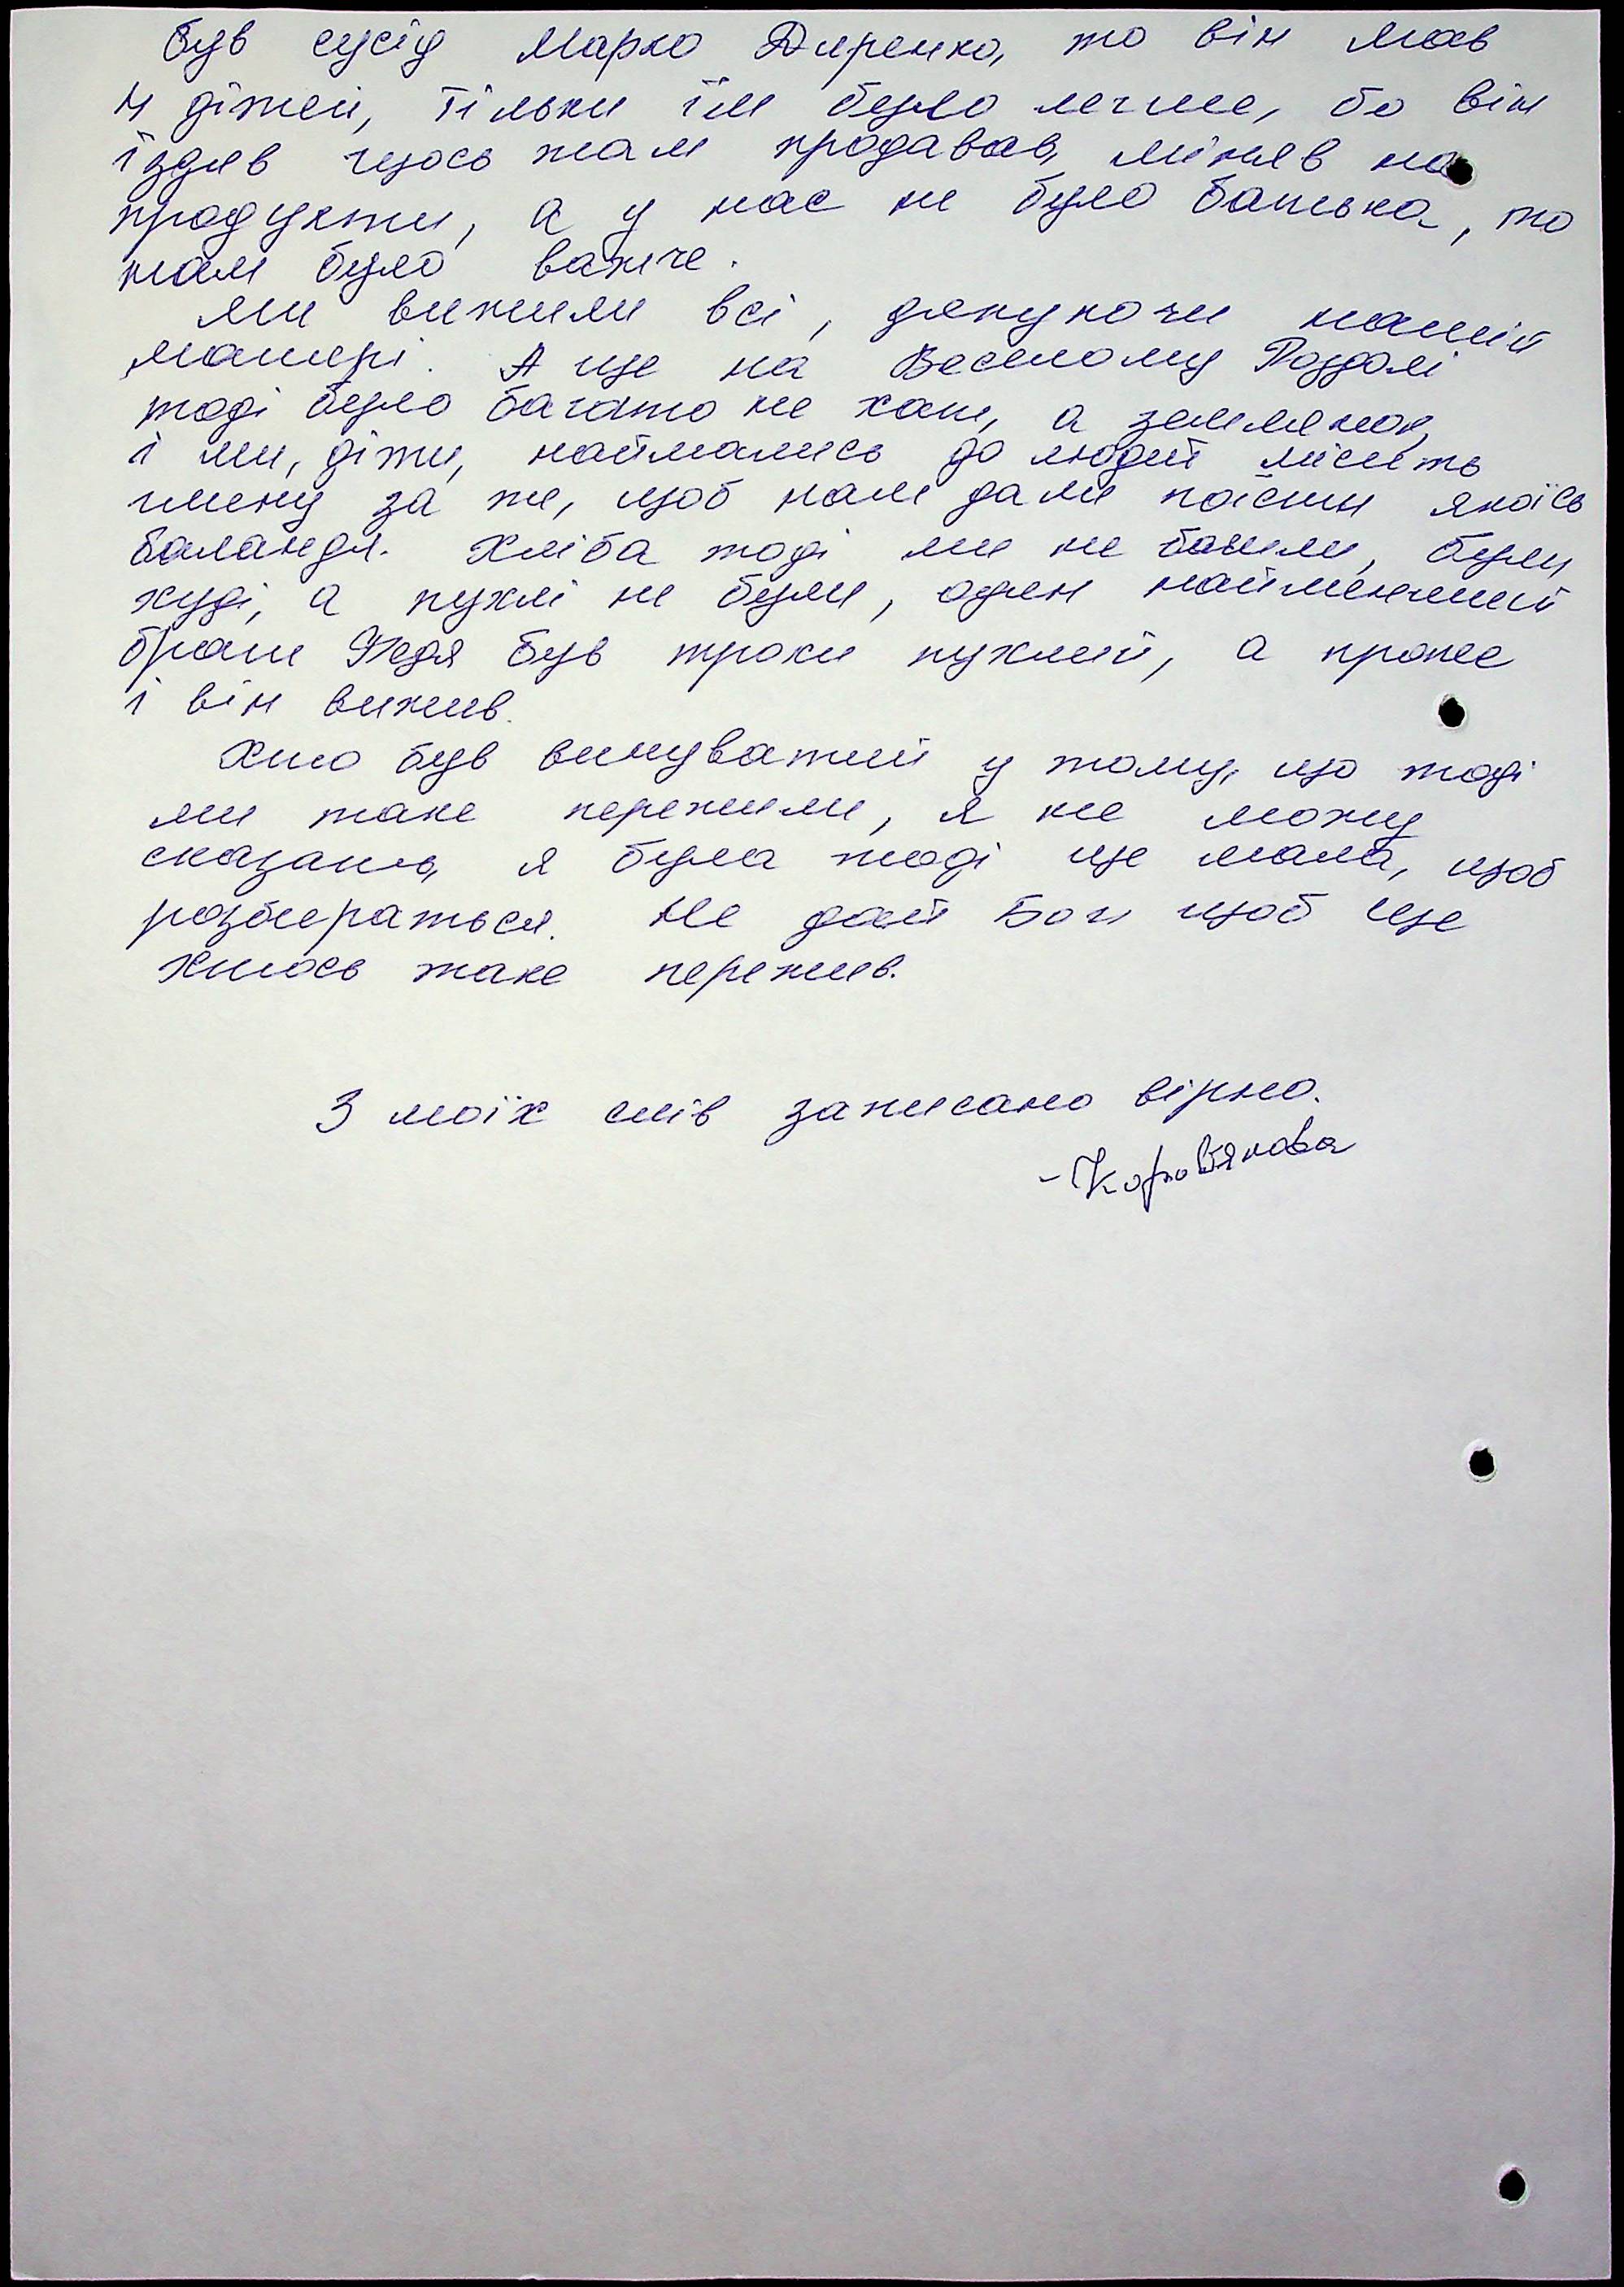 Був сусід Марко Диренко, то він мав
4 дітей, тільки їм було легше, бо він
їздив щось там продавав, міняв на
продукти, а у нас не було батька, то
нам було важче.
Ми вижили всі, дякуючи нашій
матері. А ще на Веселому Роздолі
тоді було багато не хат, а землянок,
і ми, діти, наймались до людей місить
глину за те, щоб нам дали поїсти якоїсь
баланди. Хліба тоді ми не бачили, були
худі, а пухлі не були, один найменший
брат Федя був трохи пухлий, а проте
і він вижив.
Хто був винуватий у тому, що тоді
ми таке пережили, я не можу
сказать, я була тоді ще мала, щоб
розбираться. Не дай Бог щоб ще
хтось таке пережив.
З моїх слів записано вірно.
- Коров'якова